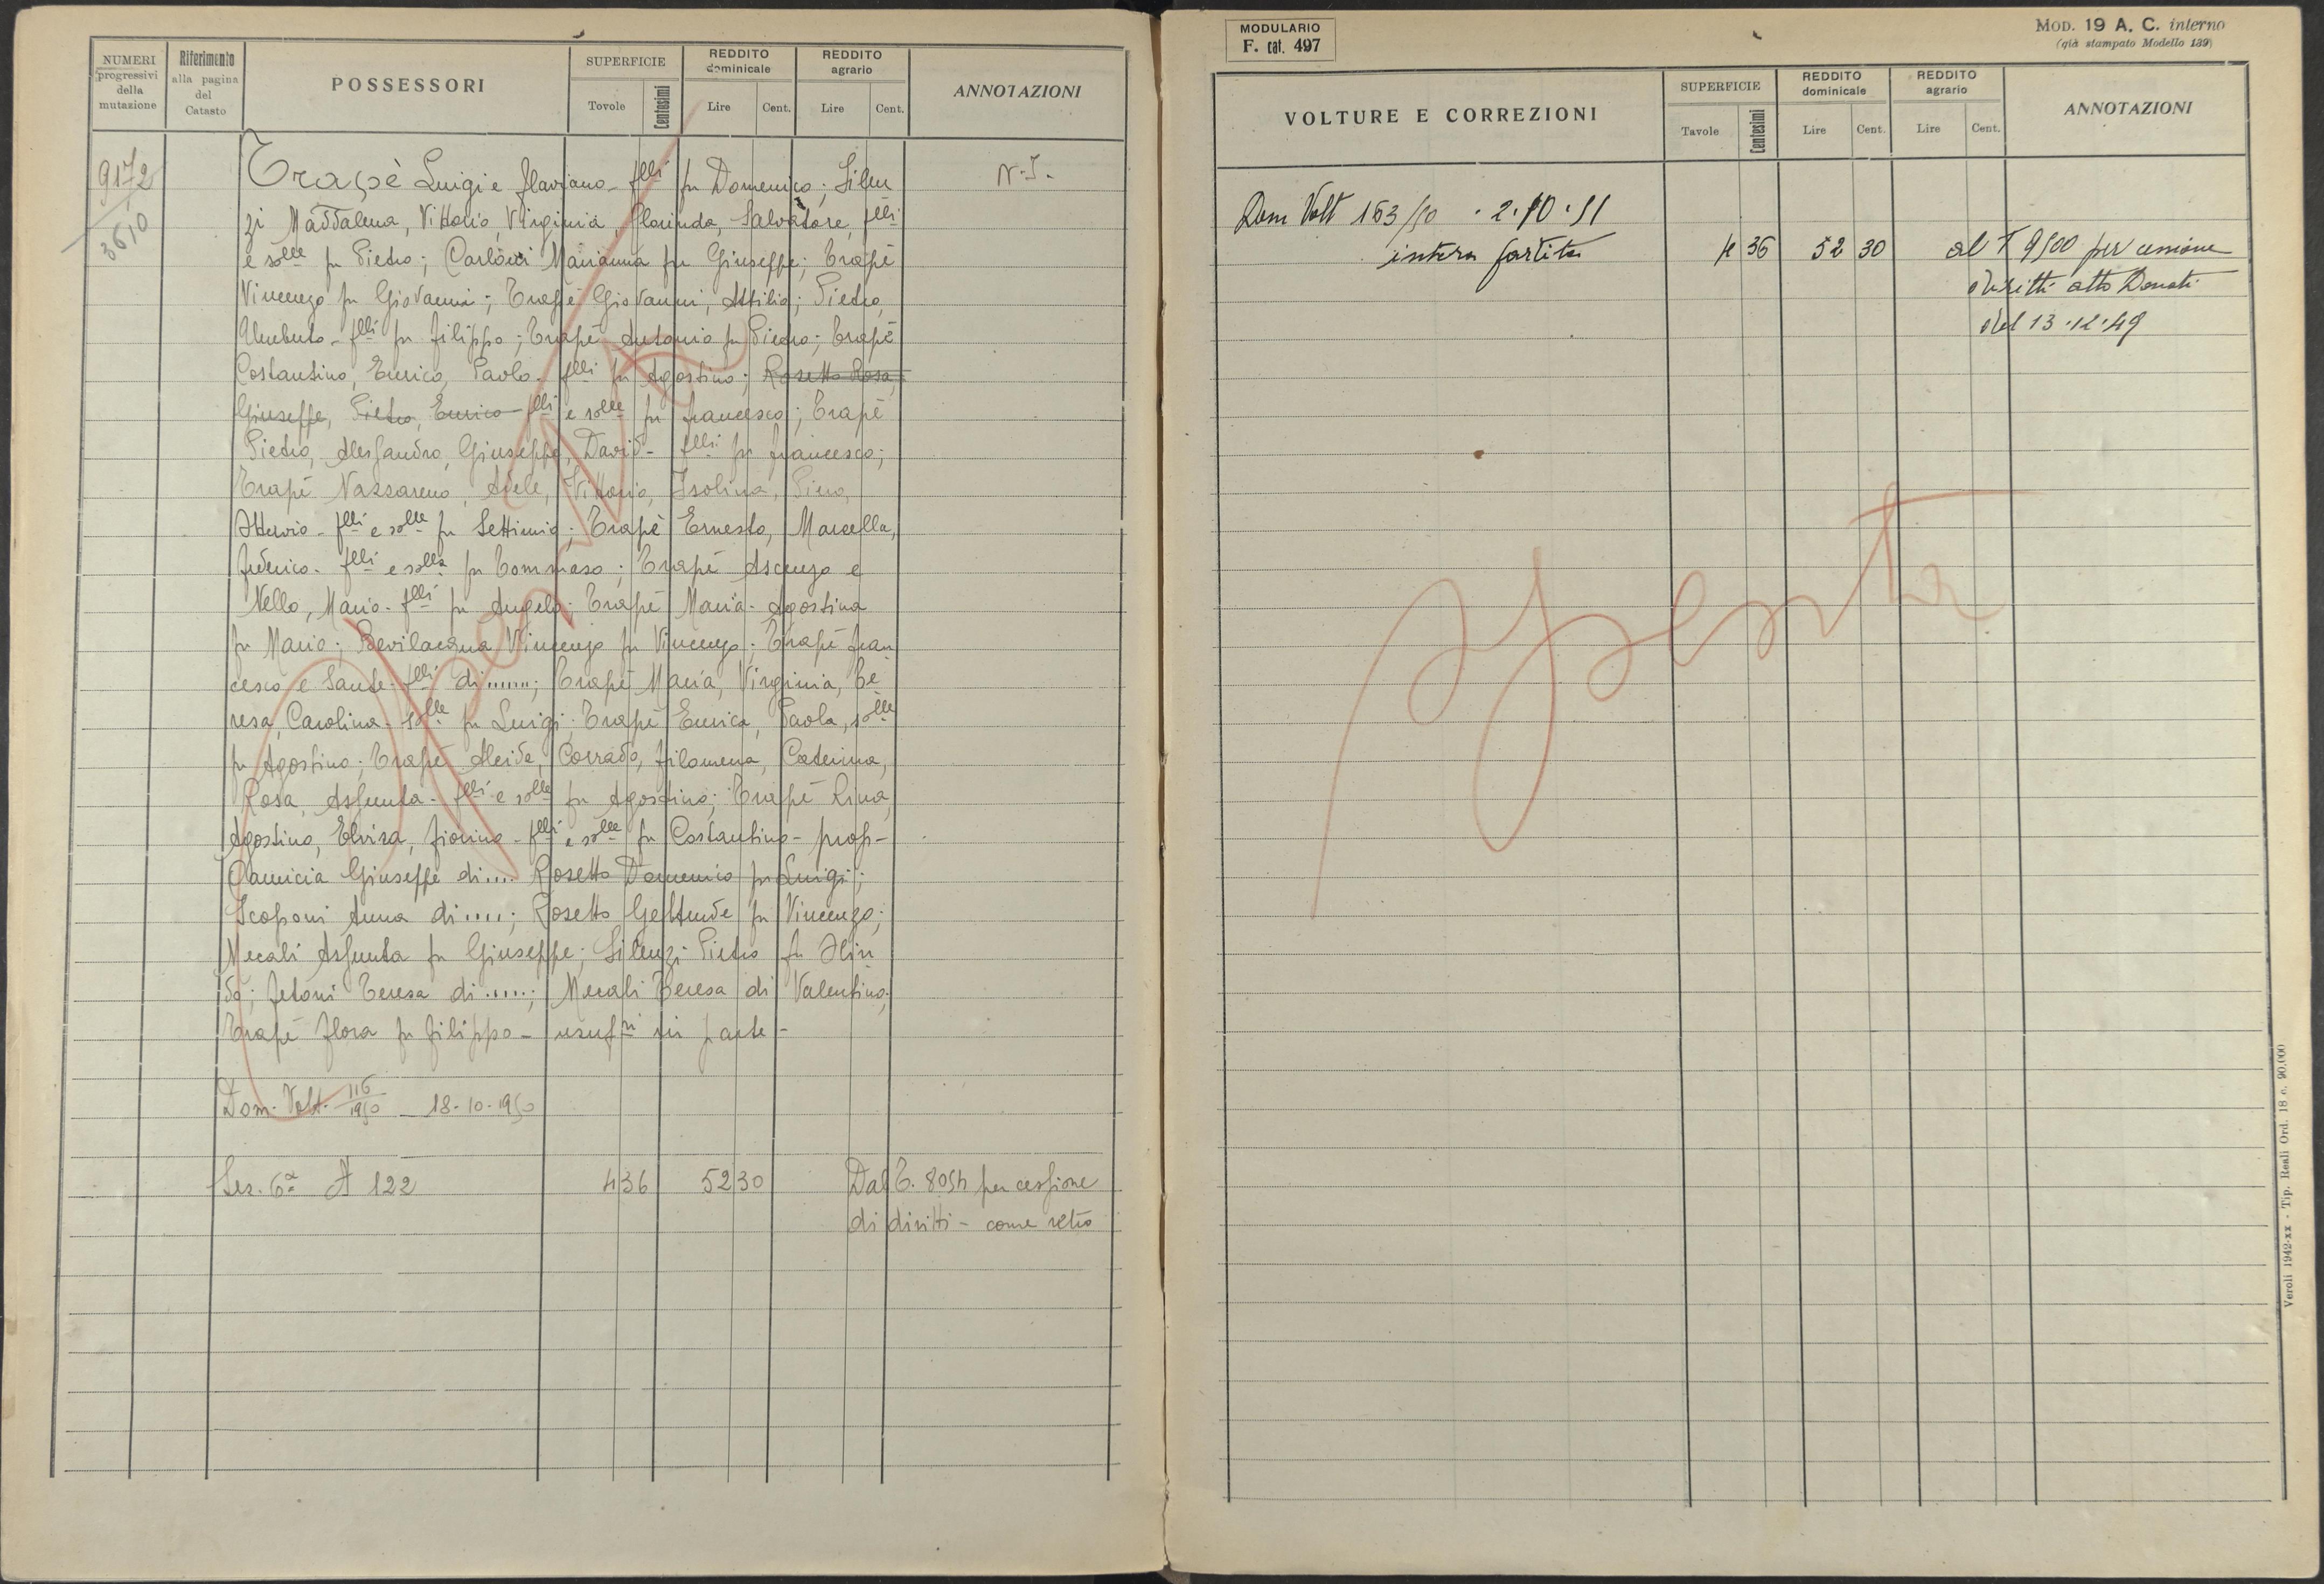 NUMERI progressivi della mutazione
Riferimento alla pagina del Catasto
POSSESSORI
SUPERFICIE
Tovole
Centesimi
REDDITO dominicale
Lire
Cent.
REDDITO agrario
Lire
Cent.
ANNOTAZIONI
9172
3610
Trapè Luigi e Flaviano - flli fu Domenico; Silen
zi Maddalena, Vittorio, Virginia, Florinda, Salvatore, flli
e solle fu Pietro; Carloni Marianna fu Giuseppe; Trapè
Vincenzo fu Giovanni; Trapè Giovanni, Attilio; Pietro,
Umberto - flli fu Filippo; Trapè Antonio fu Pietro; Trapè
Costantino, Enrico, Paolo - flli fu Agostino; Rosetto Rosa,
Giuseppe, Pietro, Enrico flli e solle fu Francesco; Trapè
Pietro, Alessandro, Giuseppe, David - flli fu Francesco;
Trapè Nazzareno, Adele, Vittorio, Isolina, Pino,
- flli e solle fu Settimio; Trapè Ernesto, Marcella,
Federico - flli e solla fu Tommaso; Trapè Ascenzo e
Nello, Mario - flli fu Angelo; Trapè Maria - Agostina
fu Mario; Bevilacqua Vincenzo fu Vincenzo; Trapè Fran
cesco e Sante - flli di ......; Trapè Maria, Virginia, Te
resa, Carolina - solle fu Luigi; Trapè Enrica, Paola, solle
fu Agostino; Trapè Alcide, Corrado, Filomena, Caterina,
Rosa, Assunta - flli e solle fu Agostino; Trapè Rina,
Agostino, Elvira, Fiorino - flli e solle fu Costantino - prop -
Camicia Giuseppe di .... Rosetto Domenico fu Luigi;
Scoponi Anna di ....; Rosetto Geltrude fu Vincenzo;
Mecali Assunta fu Giuseppe; Silenzi Pietro fu Olin
do; Fetoni Teresa di .....; Mecali Teresa di Valentino;
Trapè Flora fu Filippo - usufri in parte -
N.I.
Dom. Volt. 116/1950 - 18-10-1950
Sez. 6a A 122 4 36 52 30 Dal T. 8054 per cessione
di diritti - come retro
Spenta
MODULARIO
F. cat. 497
MOD. 19 A. C. interno
(già stampato Modello 139)
VOLTURE E CORREZIONI
SUPERFICIE
Tavole
Centesimi
REDDITO dominicale
Lire
Cent.
REDDITO agrario
Lire
Cent.
ANNOTAZIONI
Dom Volt 163/50 . 2.10.51
intera partita 4 36 52 30 al T 9500 per cessione
diritti atto Donati
del 13.12.49
Spenta
Veroli 1942-xx - Tip. Reali Ord. 18 c. 90.000